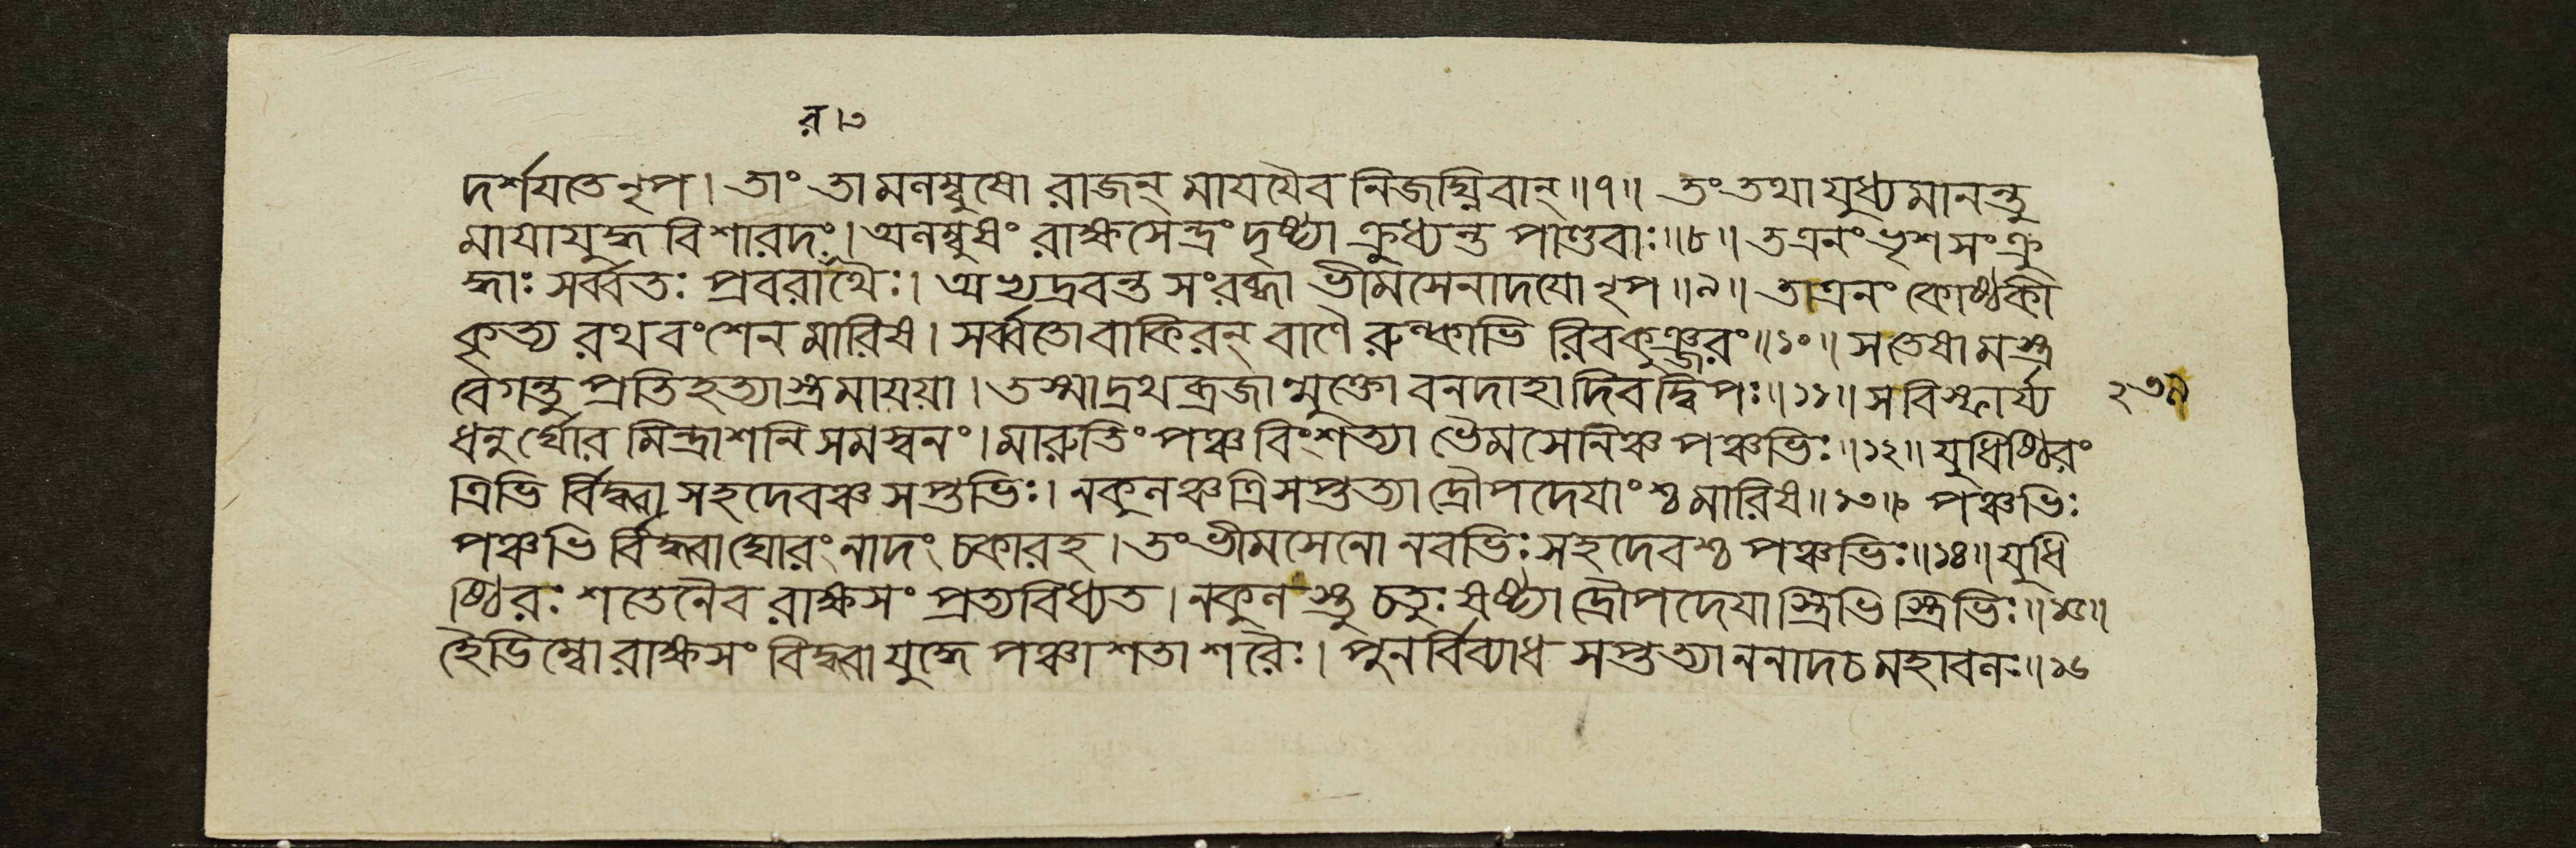 র ।৩
দর্শযতে নৃপ। তাং তামলম্বুষো রাজন্ মাযযৈব নিজঘ্নিবান্॥৭॥ তং তথা যুধ্যমানন্তু
মাযাযুদ্ধ বিশারদং। অলম্বুষং রাক্ষসেন্দ্রং দৃষ্ট্বা ক্রুধ্যন্ত পাণ্ডবাঃ॥৮॥ তএনং ভৃশ সংক্রু
দ্ধাঃ সর্ব্বতঃ প্রবরা র্থৈঃ। অভ্যদ্রবন্ত সংরব্ধা ভীমসেনাদযো নৃপ॥৯॥ তাএনং কোষ্ঠকী
কৃত্য রথবংশেন মারিষ। সর্ব্বতোবাকিরন্ বাণৈ রুল্কাভি রিবকুঞ্জরং॥১০॥ সতেষামস্ত্র
বেগন্তু প্রতিহত্যাস্ত্রমায়যা। তস্মাদ্রথব্রজান্মুক্তো বনদাহাদিবদ্বিপঃ॥১১॥ সবিস্ফার্য্য
২৩৯
ধনুর্ঘোর মিন্দ্রাশনি সমস্বনং। মারুতিং পঞ্চবিংশত্যা ভৈমসেনিঞ্চ পঞ্চভিঃ॥১২॥ যুধিষ্ঠিরং
ত্রিভি র্বিদ্ধ্বা সহদেবঞ্চ সপ্তভিঃ। নকুলঞ্চ ত্রিসপ্তত্যা দ্রৌপদেযাংশ্চ মারিষ॥১৩॥ পঞ্চভিঃ
পঞ্চভি র্বিদ্ধ্বা ঘোরং নাদং চকারহ। তং ভীমসেনো নবভিঃ সহদেবশ্চ পঞ্চভিঃ॥১৪॥ যুধি
ষ্ঠিরঃ শতেনৈব রাক্ষসং প্রত্যবিধ্যত। নকুল স্তু চতুঃষষ্ট্যা দ্রৌপদেযাস্ত্রিভিস্ত্রিভিঃ॥১৫॥
হৈডিম্বো রাক্ষসং বিদ্ধ্বা যুদ্ধে পঞ্চাশতা শরৈঃ। পুনর্বিব্যাধ সপ্তত্যা ননাদচ মহাবলঃ॥১৬